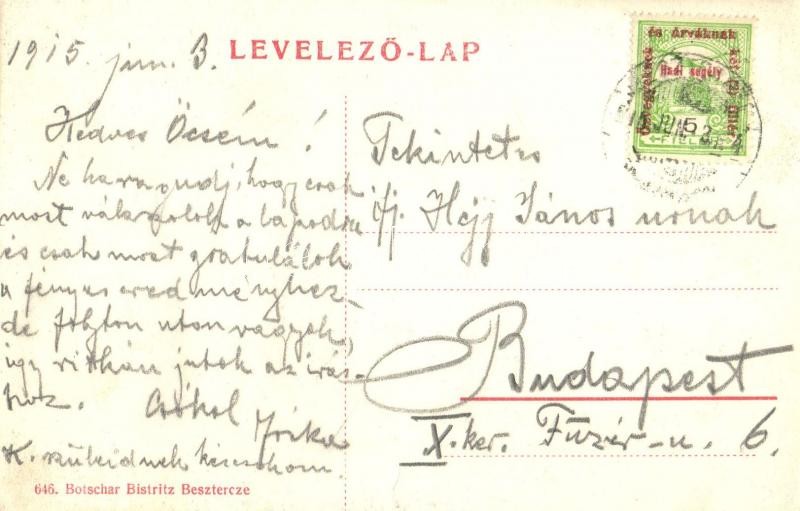 1915. jun. 3.
LEVELEZŐ-LAP
Kedves Öcsém!
Ne haragudj, hogy csak
most válaszolok a lapodra
és csak most gratulálok
a fényes eredményhez,
de folyton uton vagyok,
így ritkán jutok az írás-
hoz. Csókol Jóska
K. szüleidnek kézcsókom.
646. Botschar Bistritz Besztercze
Özvegyeknek és árváknak két (2) fillér
Hadi segély
FILLÉR
Tekintetes
ifj. Héjj János urnak
Budapest
X. ker. Füzér-u. 6.